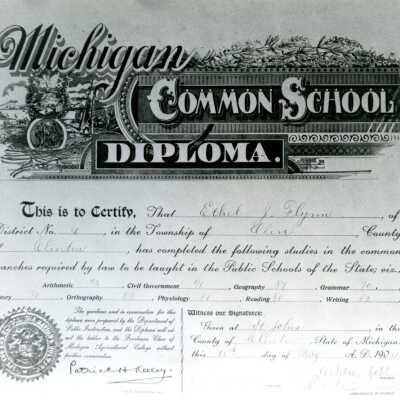 Michigan
COMMON SCHOOL
DIPLOMA.
This is to Certify, That Ethel J. Flynn, of
District No. 4, in the Township of County
Clinton, has completed the following studies in the common
branches required by law to be taught in the Public Schools of the State; viz.
Arithmetic Civil Government Geography Grammar
Orthography Physiology Reading Writing
The questions and examination for this
diploma were prepared by the Department of
Public Instruction, and the Diploma will ad-
mit the holder to the Freshman Class of
Michigan Agricultural College without
further examination.
Patrick H. Kelley.
Witness our Signature:
Given at St Johns in the
County of Clinton, State of Michigan
this day of May A. D. 190